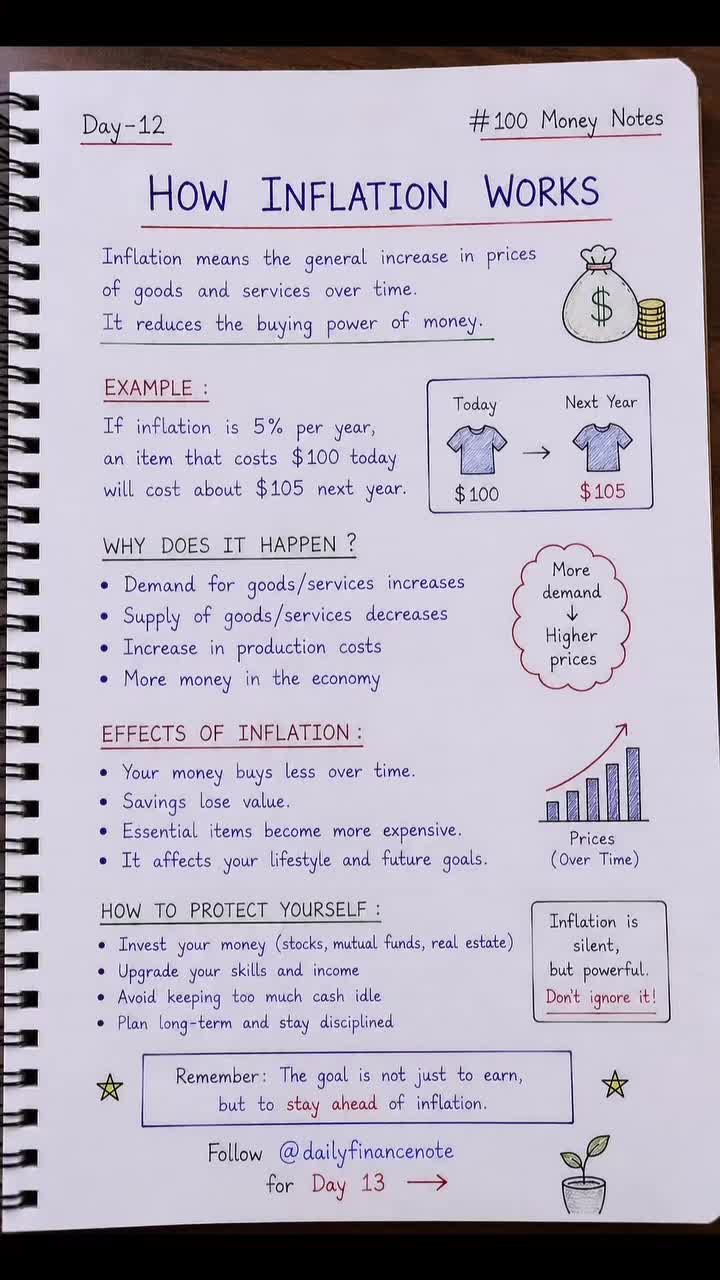 Day-12
#100 Money Notes
HOW INFLATION WORKS
Inflation means the general increase in prices
of goods and services over time.
It reduces the buying power of money.
$
EXAMPLE :
If inflation is 5% per year,
an item that costs $100 today
will cost about $105 next year.
Today
Next Year
→
$100
$105
WHY DOES IT HAPPEN ?
• Demand for goods/services increases
• Supply of goods/services decreases
• Increase in production costs
• More money in the economy
More
demand
↓
Higher
prices
EFFECTS OF INFLATION :
• Your money buys less over time.
• Savings lose value.
• Essential items become more expensive.
• It affects your lifestyle and future goals.
Prices
(Over Time)
HOW TO PROTECT YOURSELF :
• Invest your money (stocks, mutual funds, real estate)
• Upgrade your skills and income
• Avoid keeping too much cash idle
• Plan long-term and stay disciplined
Inflation is
silent,
but powerful.
Don't ignore it!
Remember: The goal is not just to earn,
but to stay ahead of inflation.
Follow @dailyfinancenote
for Day 13 →